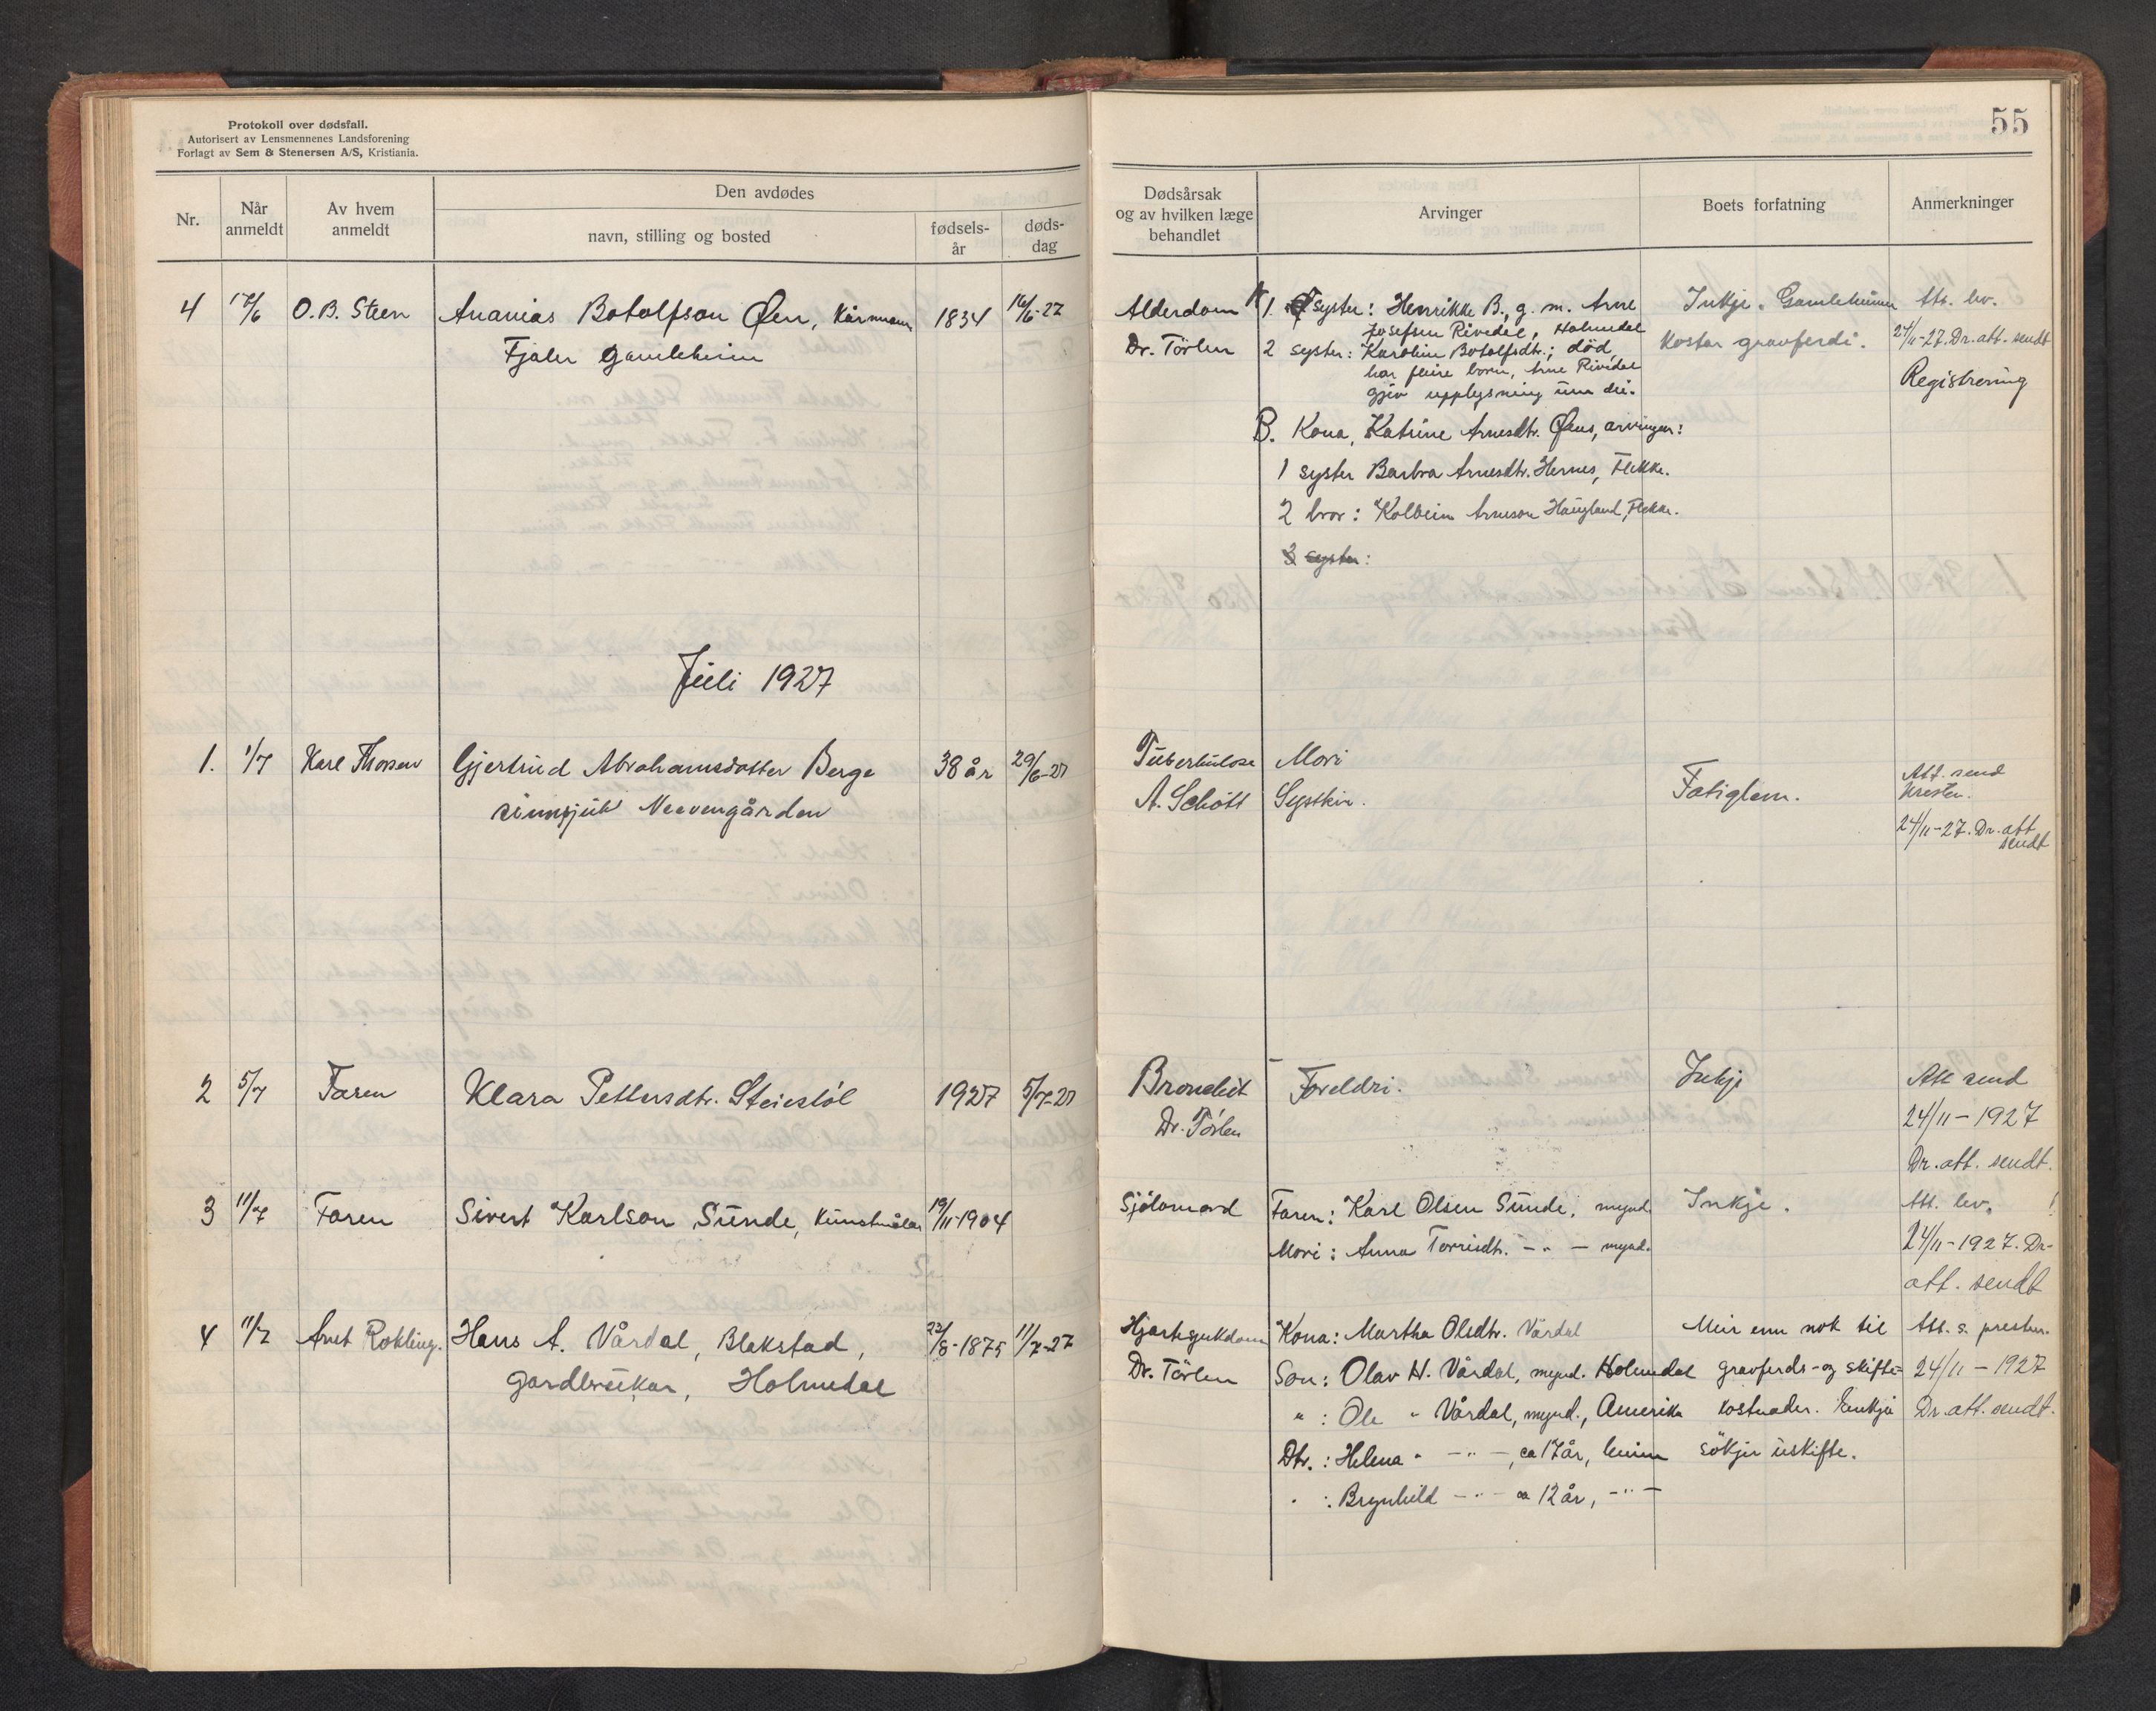 Protokoll over dødsfall.
Autorisert av Lensmennenes Landsforening
Forlagt av Sem & Stenersen A/S, Kristiania.
55
Nr.
Når anmeldt
Av hvem anmeldt
Den avdødes
navn, stilling og bosted
fødselsår
dødsdag
Dødsårsak og av hvilken læge behandlet
Arvinger
Boets forfatning
Anmerkninger
4 17/6 O.B. Steen Ananias Botolfson Øen, Kårmann 1834 16/6-27
Fjaler Gamleheim
Alderdom
Dr. Törlen
1 syster: Henrikke B., g. m. Arne
Josefsen Rivedal, Holmedal
2 syster: Karoline Botolfsdtr.; död,
har fleire born, Arne Rivedal
gjev upplysning um dei.
B. Kona, Katrine Arnesdtr. Øens, arvingar:
1 syster Barbra Arnesdtr. Hernes, Flekke.
2 bror: Kolbein Arneson Haugland, Flekke.
3 syster:
Inkje. Gamleheimen
kostar gravferdi.
Att. lev.
24/11-27. Dr. att. sendt
Registrering
Juli 1927
1. 1/7 Karl Thorsen Gjertrud Abrahamsdotter Berge 38 år 29/6-27
sinnsjuk Neevengården
Tuberkulose
A. Schött
Mori
Systkin.
Fatiglem.
Att. send
presten.
24/11-27. Dr. att
sendt
2 5/7 Faren Klara Pettersdtr. Steiestöl 1927 5/7-27
Bronchit
Dr. Törlen
Foreldri.
Inkje
Att send
24/11-1927
Dr. att. sendt.
3 11/7 Faren Sivert Karlson Sunde, kunstmålar 19/11-1904
Sjölvmord
Faren: Karl Olsen Sunde, mynd
Mori: Anna Torrisdtr. -"- mynd.
Inkje.
Att. lev.
24/11-1927. Dr-
att. sendt
4 11/7 Anet Rokling. Hans A. Vårdal, Blakstad, 22/8-1875 11/7-27
gardbrukar, Holmedal
Hjartesjukdom
Dr. Törlen
Kona: Martha Olsdtr. Vårdal
Son: Olav H. Vårdal, mynd. Holmedal
" : Ole " Vårdal, mynd., Amerika
Dtr.: Helena " -"-, ca 17 år, heime
" : Brynhild -"- ca 12 år, -"-
Meir enn nok til
gravferds- og skifte-
kostnader. Enkja
sökjer uskifte.
Att. s. presten.
24/11-1927
Dr. att. sendt.